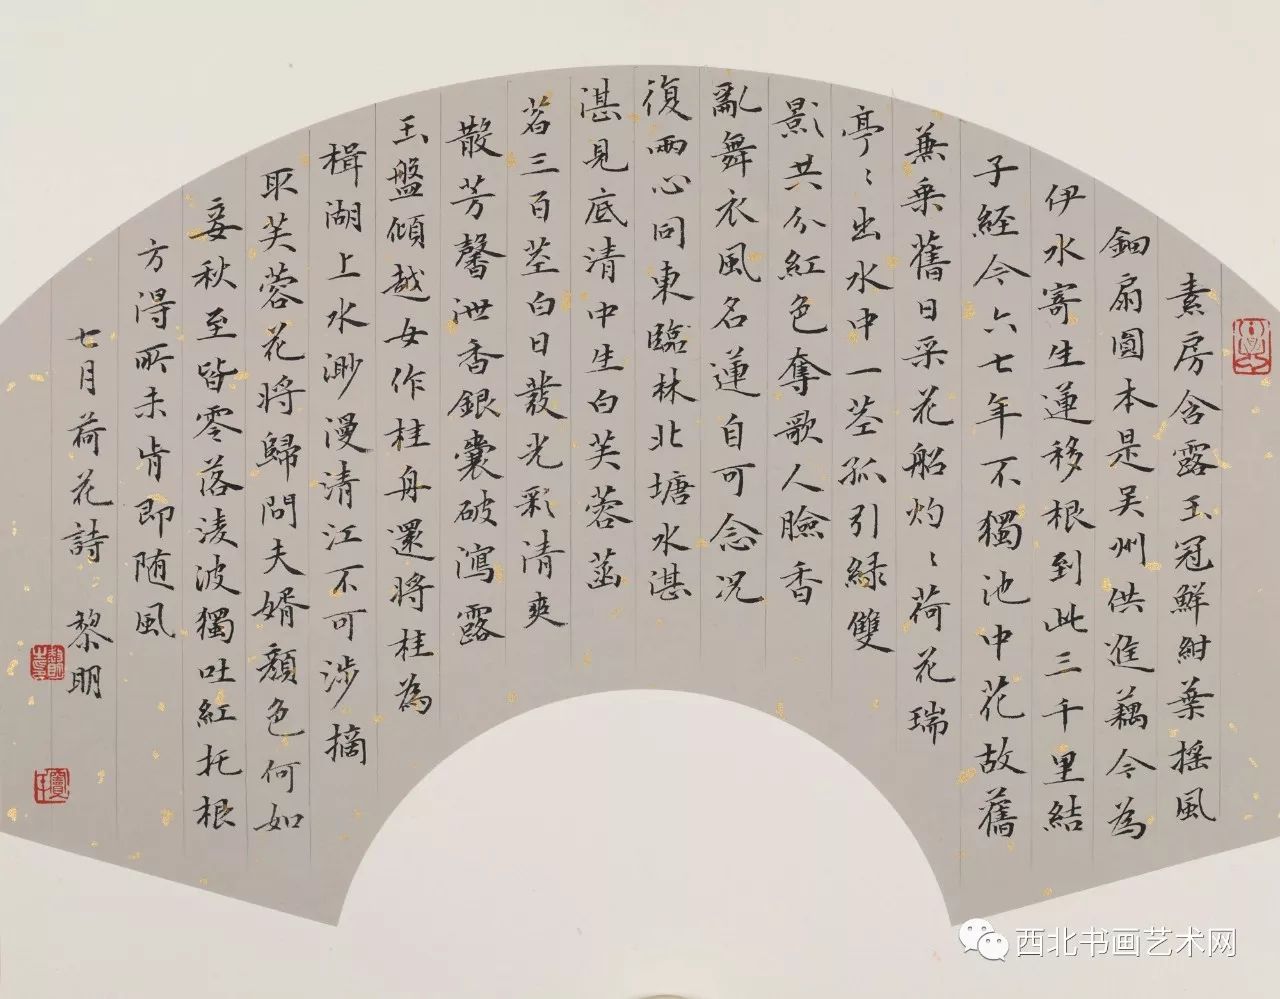 素房含露玉冠鮮紺葉搖風
鈿扇圓本是吴州供進藕今為
伊水寄生蓮移根到此三千里結
子經今六七年不獨池中花故舊
兼乗舊日采花船灼〻荷花瑞
亭〻出水中一茎孤引緑雙
影共分紅色奪歌人臉香
亂舞衣風名蓮自可念况
復兩心同東臨林北塘水湛
湛見底清中生白芙蓉菡
萏三百茎白日發光彩清爽
散芳馨泄香銀囊破瀉露
玉盤傾越女作桂舟還將桂為
楫湖上水渺漫清江不可涉摘
取芙蓉花將歸問夫婿顏色何如
妾秋至皆零落淩波獨吐紅托根
方得所未肯即随風
七月荷花詩 黎明
西北书画艺术网